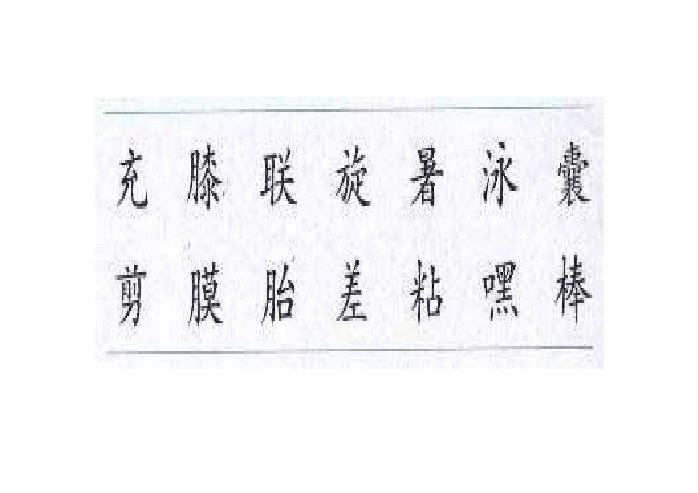 充 膝 联 旋 暑 泳 囊
剪 膜 胎 差 粘 嘿 棒